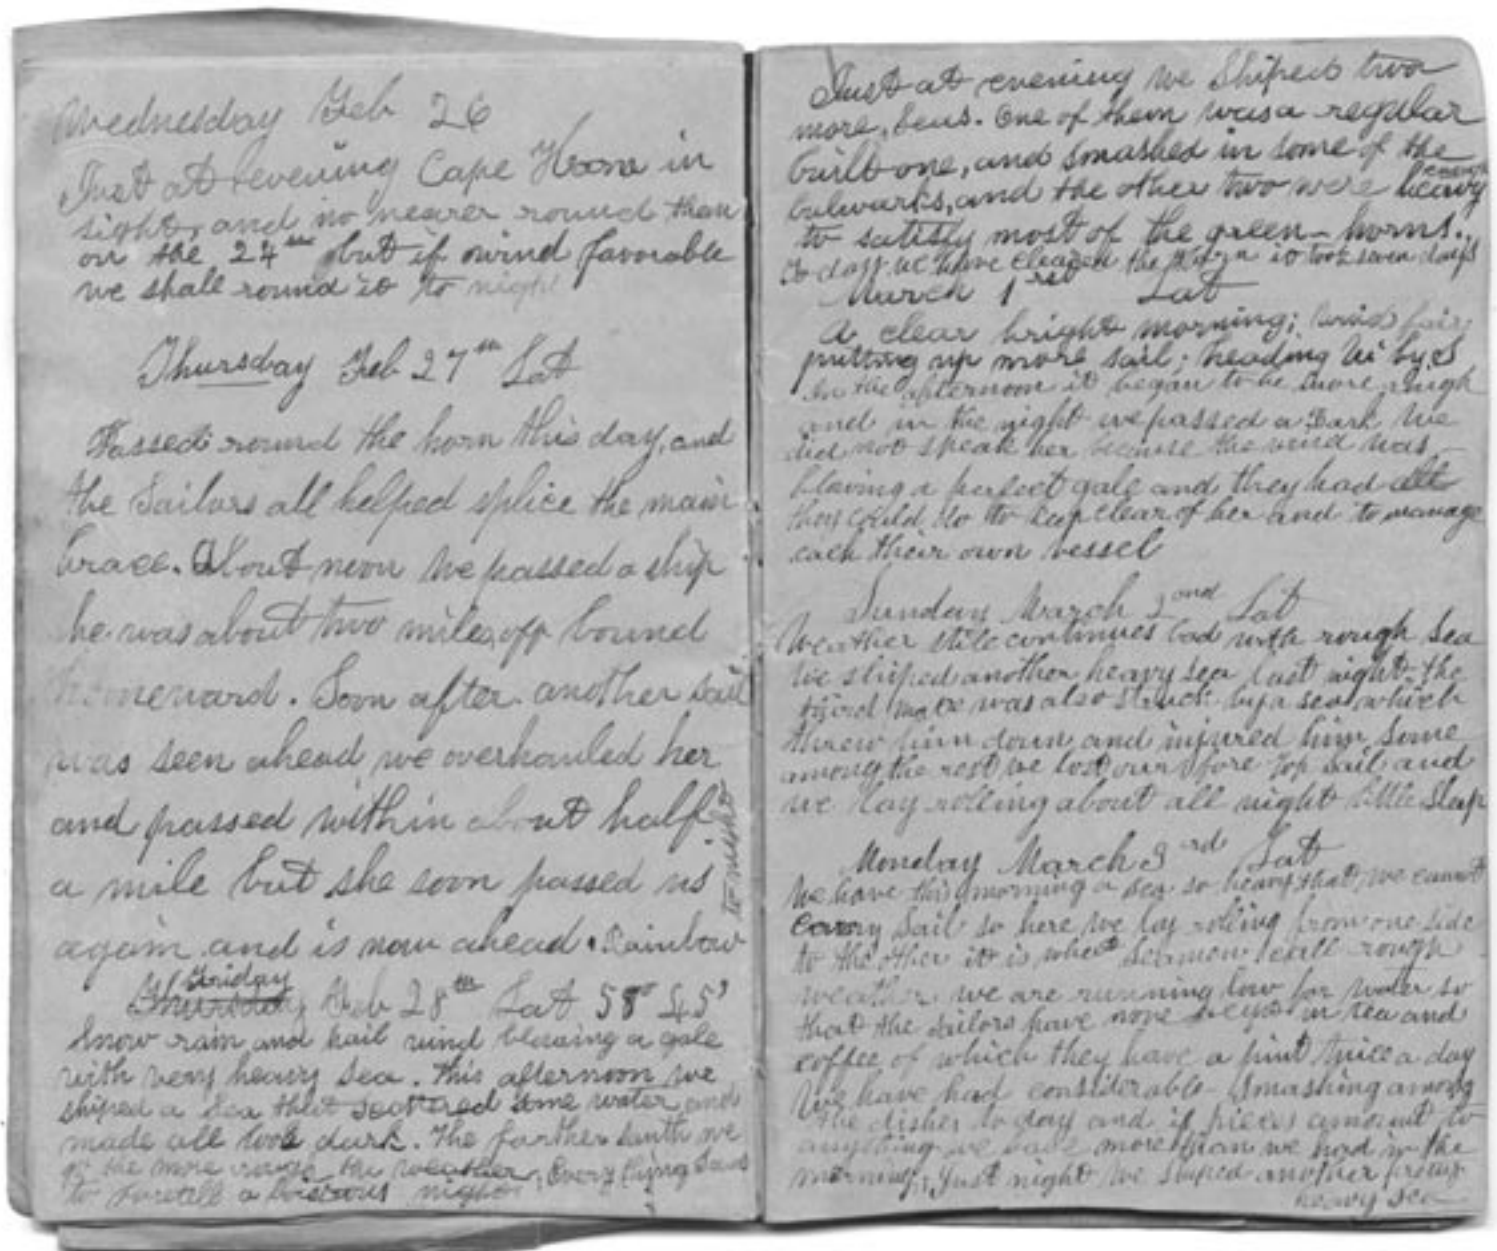 Wednesday Feb 26
Just at evening Cape Horn in
sight, and no nearer round than
on the 24th but if wind favorable
we shall round it to night
Thursday Feb 27th Lat
Passed round the horn this day, and
the Sailors all helped splice the main
brace. About noon we passed a ship
he was about two miles off bound
homeward. Soon after another sail
was seen ahead we overhauled her
and passed within about half
a mile but she soon passed us
again and is now ahead. Rainbow
to night
Friday
Thursday Feb 28th Lat 58° 45'
Snow rain and hail wind blowing a gale
with very heavy Sea. This afternoon we
shiped a Sea that scattered some water and
made all look dark. The farther south we
the more the weather. Every thing
to foretell a night
Just at evening we Shiped two
more Seas. One of them was a regular
built one, and smashed in some of the
bulwarks, and the other two were heavy enough
to satisfy most of the green-horns.
To day we have cleared the it took seven days
March 1rst Lat
A clear bright morning; wind fair;
putting up more sail; heading W by S
In the afternoon it began to be more rough
and in the night we passed a Bark We
did not speak her because the wind was
blowing a perfect gale and they had all
they could do to keep clear of her and to manage
each their own vessel
Sunday March 2ond Lat
Weather still continues bad with rough Sea
We shiped another heavy sea last night. the
third mate was also struck by a sea which
threw him down and injured him Some
among the rest we lost our fore top sail and
we lay rolling about all night little Sleep
Monday March 3rd Lat
We have this morning a Sea so heavy that we cannot
carry Sail so here we lay rolling from one side
to the other it is what Seamen call rough
weather. we are running low for water so
that the Sailors have none except in tea and
coffee of which they have a pint twice a day
We have had considerable Smashing among
the dishes to day and if pieces amount to
anything we have more than we had in the
morning. Just night We shiped another
heavy sea